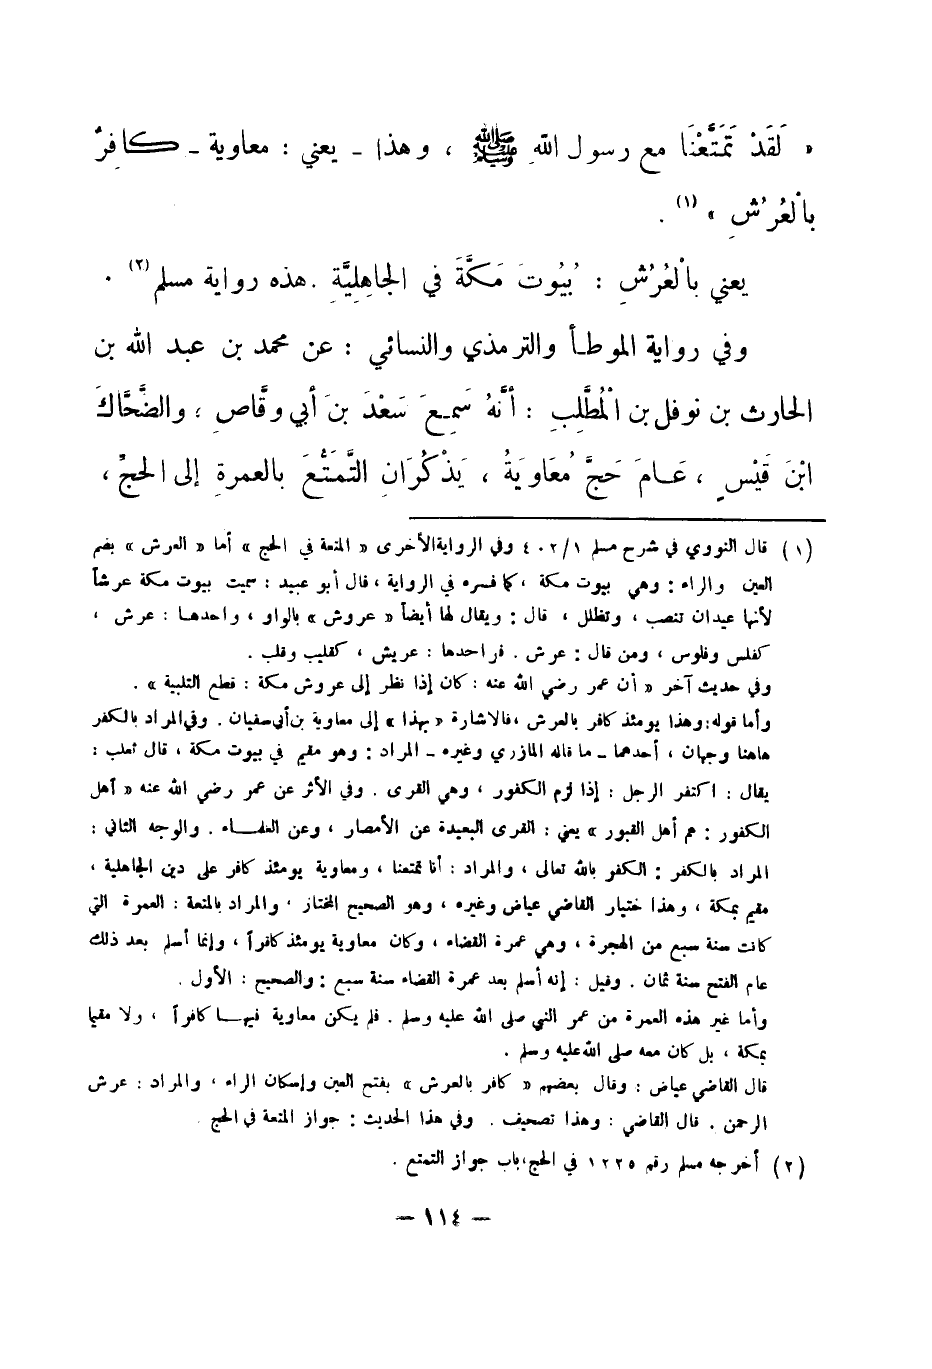 « لَقَدْ تَمَتَّعْنَا مع رسول اللهِ ﷺ ، وهذا ـ يعني : معاوية ـ كافِرٌ
بالْعُرُشِ » (١) .
يعني بالْعُرُشِ : بُيُوتَ مَكَّةَ في الجاهِلِيَّةِ . هذه رواية مسلم (٢) .
وفي رواية الموطأ والترمذي والنسائي : عن محمد بن عبد الله بن
الحارث بن نوفل بن الْمُطَّلِبِ : أنَّهُ سَمِعَ سَعْدَ بنَ أبي وقَّاصٍ ، والضَّحَّاكَ
ابْنَ قَيْسٍ ، عَامَ حَجَّ مُعَاوِيَةُ ، يَذْكُرَانِ التَّمَتُّعَ بالعمرةِ إلى الحجِّ ،
(١) قال النووي في شرح مسلم ٤٠٢/١ وفي الرواية الأخرى « المتعة في الحج » أما « العرش » بضم
العين والراء : وهي بيوت مكة ، كما فسره في الرواية ، قال أبو عبيد : سميت بيوت مكة عرشاً
لأنها عيدان تنصب ، وتظلل ، قال : ويقال لها أيضاً « عروش » بالواو ، واحدها : عرش ،
كفلس وفلوس ، ومن قال : عرش . فواحدها : عريش ، كقليب وقلب .
وفي حديث آخر « أن عمر رضي الله عنه : كان إذا نظر إلى عروش مكة : قطع التلبية » .
وأما قوله : وهذا يومئذ كافر بالعرش ، فالاشارة « بهذا » إلى معاوية بن أبي سفيان . وفي المراد بالكفر
هاهنا وجهان ، أحدهما ـ ما قاله المازري وغيره ـ المراد : وهو مقيم في بيوت مكة ، قال ثعلب :
يقال : اكتفر الرجل : إذا لزم الكفور ، وهي القرى . وفي الأثر عن عمر رضي الله عنه « أهل
الكفور : هم أهل القبور » يعني : القرى البعيدة عن الأمصار ، وعن العلماء . والوجه الثاني :
المراد بالكفر : الكفر بالله تعالى ، والمراد : أنا تمتعنا ، ومعاوية يومئذ كافر على دين الجاهلية ،
مقيم بمكة ، وهذا ختيار القاضي عياض وغيره ، وهو الصحيح المختار ، والمراد بالمتعة : العمرة التي
كانت سنة سبع من الهجرة ، وهي عمرة القضاء ، وكان معاوية يومئذ كافراً ، وإنما أسلم بعد ذلك
عام الفتح سنة ثمان . وقيل : إنه أسلم بعد عمرة القضاء سنة سبع : والصحيح : الأول .
وأما غير هذه العمرة من عمر النبي صلى الله عليه وسلم . فلم يكن معاوية فيها كافراً ، ولا مقيما
بمكة ، بل كان معه صلى الله عليه وسلم .
قال القاضي عياض : وقال بعضهم « كافر بالعرش » بفتح العين وإسكان الراء ، والمراد : عرش
الرحمن . قال القاضي : وهذا تصحيف . وفي هذا الحديث : جواز المتعة في الحج .
(٢) أخرجه مسلم رقم ١٢٢٥ في الحج ، باب جواز التمتع .
– ١١٤ –